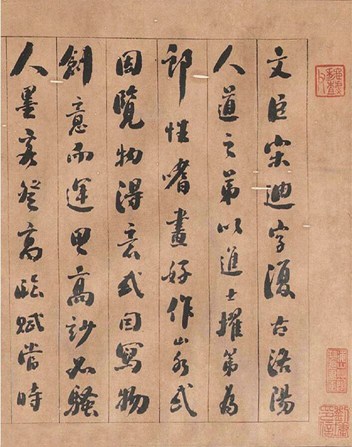 文臣宋迪字復古洛陽
人道之弟以進士擢第為
郎性嗜畫好作山水或
因覽物得意或因寫物
創意而運思高妙如騷
人墨客登高臨賦當時